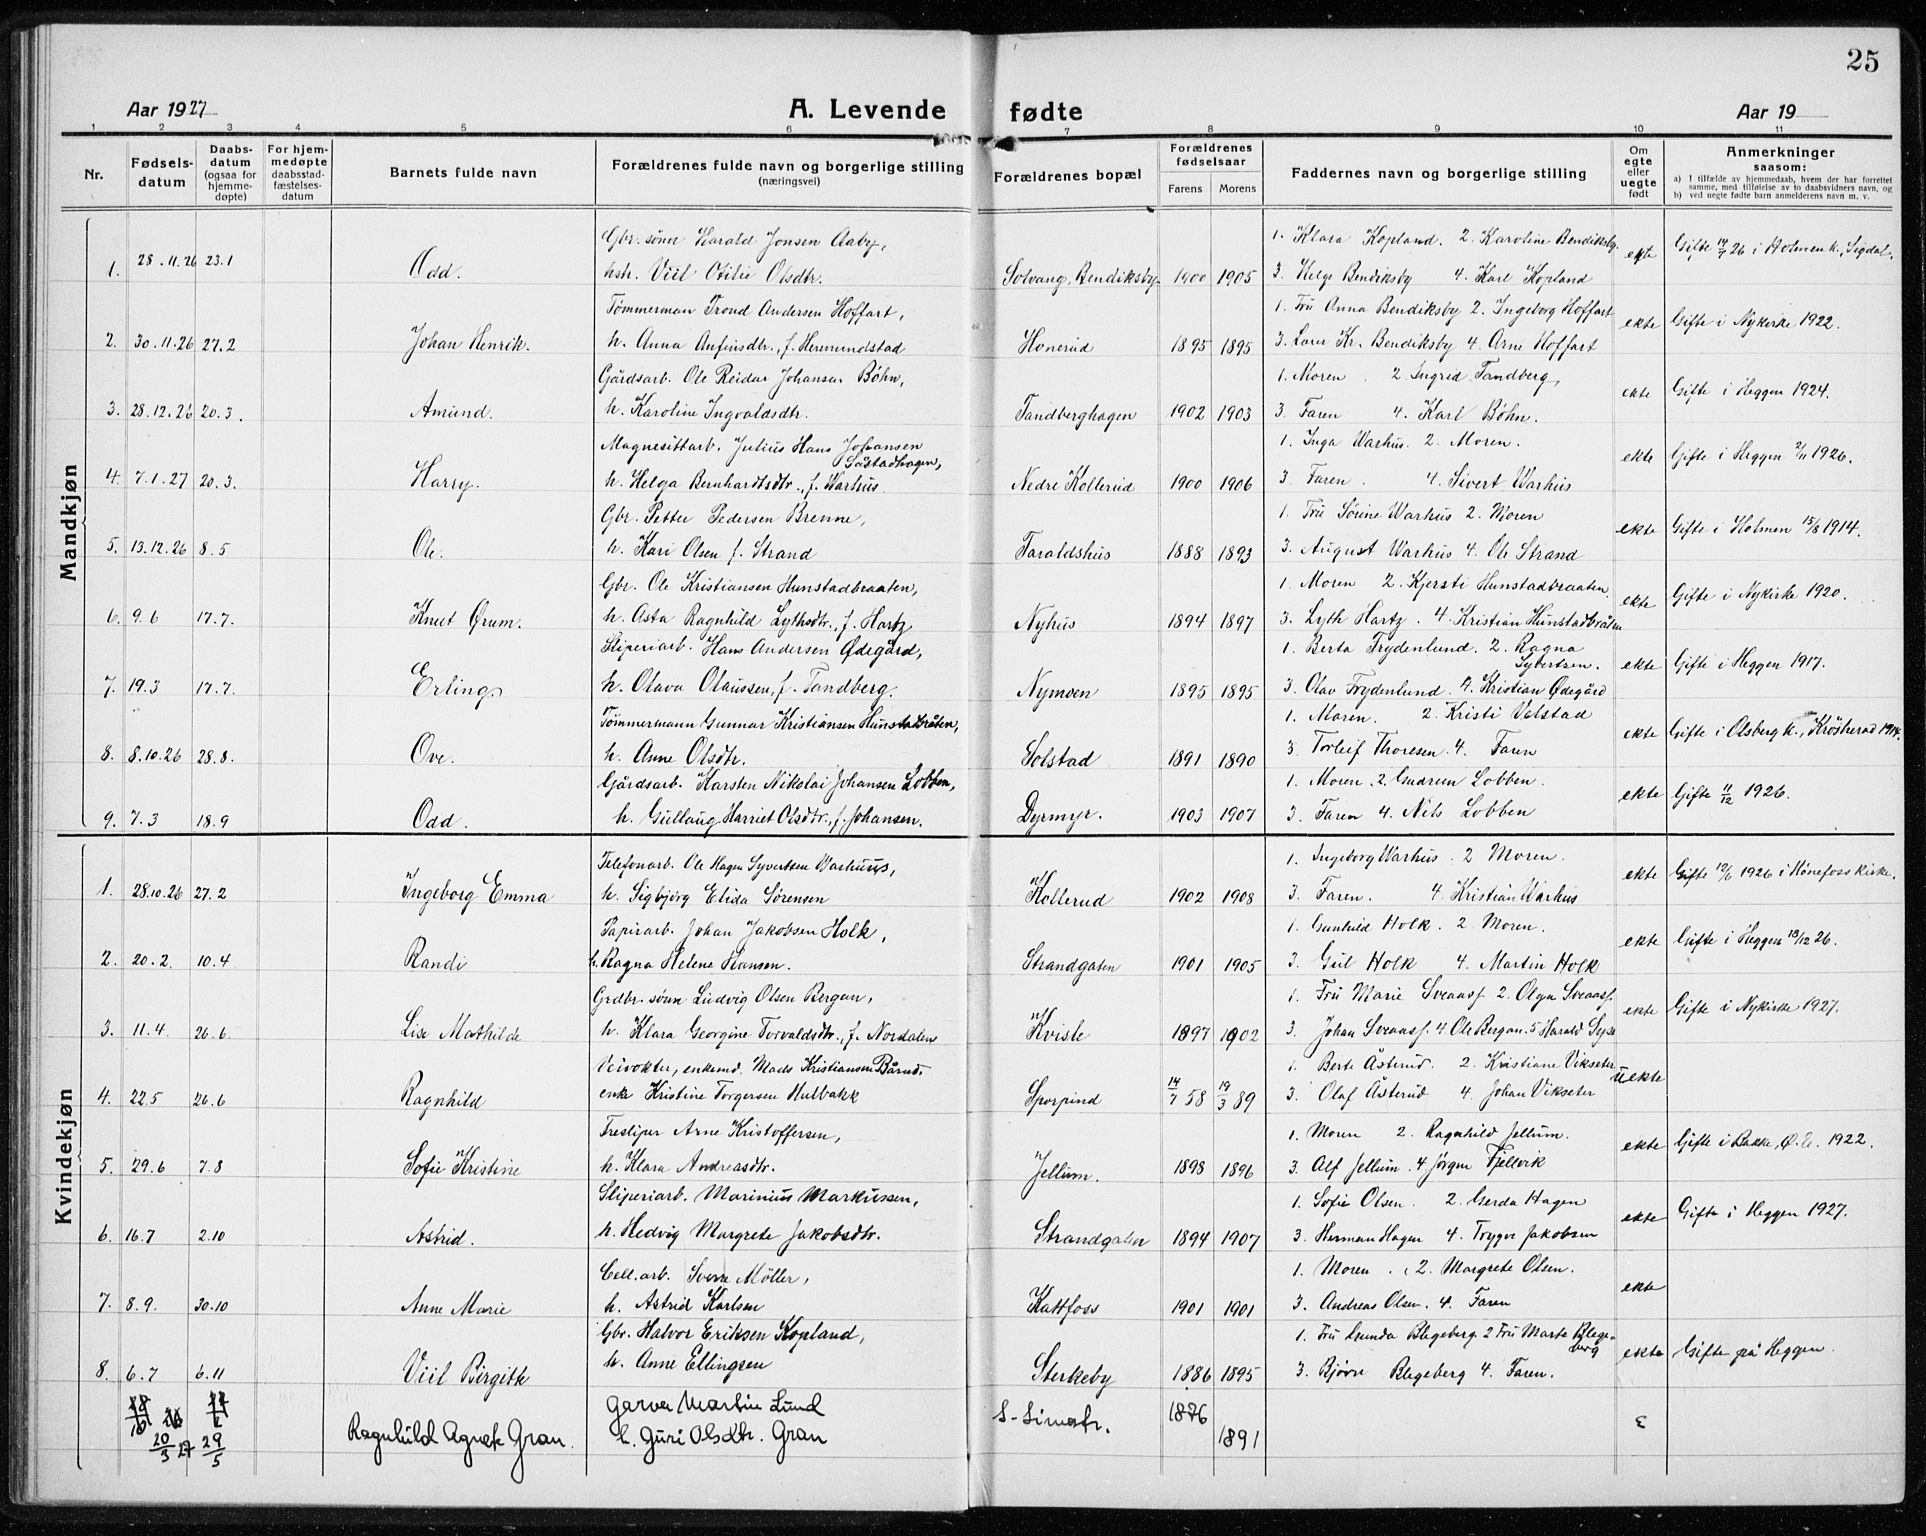 25
Aar 1927
A. Levende fødte
Aar 19
1 2 3 4 5 6 7 8 9 10 11
Nr.
Fødselsdatum
Daabsdatum (ogsaa for hjemmedøpte)
For hjemmedøpte daabsstadfæstelsesdatum
Barnets fulde navn
Forældrenes fulde navn og borgerlige stilling (næringsvei)
Forældrenes bopæl
Forældrenes fødselsaar
Farens Morens
Faddernes navn og borgerlige stilling
Om egte eller uegte født
Anmerkninger saasom:
a) I tilfælde av hjemmedaab, hvem der har forrettet samme, med tilføielse av to daabsvidners navn, og
b) ved uegte fødte barn anmelderens navn m. v.
Mandkjøn
Gbr. sønn Harald Jonsen Aaby, 1. Klara Kopland. 2. Karoline Bendiksby. Gifte 14/7 26 i Holmen k., Sigdal.
1. 28.11.26 23.1 Odd. hstr. Viil Otilie Olsdtr. Solvang, Bendiksby 1900 1905 3. Helge Bendiksby 4. Karl Kopland ekte
Tømmerman Trond Andersen Hoffart, 1. Fru Anna Bendiksby 2. Ingeborg Hoffart
2. 30.11.26 27.2 Johan Henrik. h. Anna Anfinsdtr., f. Heremundstad Honerud 1895 1895 3. Lars Kr. Bendiksby 4. Arne Hoffart ekte Gifte i Nykirke 1922.
Gårdsarb. Ole Reidar Johansen Bøhn, 1. Moren. 2. Ingrid Tandberg,
3. 28.12.26 20.3. Amund. h. Karoline Ingvaldsdtr. Tandberghagen 1902 1903 3. Faren 4. Karl Bøhn. ekte Gifte i Heggen 1924.
Magnesittarb. Julius Hans Johansen Gåstadhagen, 1. Inga Warhus. 2. Moren.
4. 7.1.27 20.3. Harry. h. Helga Bernhardtsdtr., f. Warhus. Nedre Kollerud 1900 1906 3. Faren. 4. Sivert Warhus ekte Gifte i Heggen 2/11 1926.
Gbr. Petter Pedersen Brenne, 1. Fru Sørine Warhus 2. Moren
5. 13.12.26 8.5 Ole. h. Kari Olsen f. Strand Taraldshus 1888 1893 3. August Warhus 4. Ole Strand ekte Gifte i Holmen 15/8 1914.
Gbr. Ole Kristiansen Hunstadbraaten, 1. Moren 2. Kjersti Hunstadbraaten.
6. 9.6 17.7. Knut Ørum. h. Asta Ragnhild Lythsdtr., f. Hartz Nyhus 1894 1897 3. Lyth Hartz. 4. Kristian Hunstadbråten ekte Gifte i Nykirke 1920.
Sliperiarb. Hans Andersen Ødegård, 1. Berta Frydenlund. 2. Ragna Sybertsen.
7. 19.3 17.7. Erling h. Olava Olaussen, f. Tandberg. Nymoen 1895 1895 3. Olav Frydenlund. 4. Kristian Ødegård ekte Gifte i Heggen 1917.
Tømmermann Gunnar Kristiansen Hunstadbråten, 1. Moren. 2. Kristi Velstad
8. 8.10.26 28.8. Ove. h. Anne Olsdtr. Solstad 1891 1890 3. Torleif Thoresen 4. Faren ekte Gifte i Olsberg k., Krøsherad 1914.
Gårdsarb. Karsten Nikolai Johansen Lobben, 1. Moren. 2. Gudrun Lobben.
9. 7.3 18.9 Odd. h. Gullaug Harriet Olsdtr., f. Johansen. Dyrmyr. 1903 1907 3. Faren 4. Nils Lobben ekte Gifte 11/12 1926.
Kvindekjøn
Telefonarb. Ole Hagen Syvertsen Warhus, 1. Ingeborg Warhus. 2 Moren.
1. 28.10.26 27.2 Ingeborg Emma h. Sigbjørg Elida Sørensen Kollerud 1902 1908 3. Faren. 4. Kristian Warhus ekte Gifte 12/6 1926 i Hønefoss kirke.
Papirarb. Johan Jakobsen Holk, 1. Gunhild Holk. 2. Moren.
2. 20.2. 10.4 Randi h. Ragna Helene Hansen. Strandgaten 1901 1905 3. Gul Holk 4. Martin Holk ekte Gifte i Heggen 18/12 26.
Grdbr. sønn Ludvig Olsen Bergan, 1. Fru Marie Sveaass. 2. Olga Sveaass.
3. 11.4. 26.6. Lise Mathilde h. Klara Georgine Torvaldsdtr., f. Nordalen Kvisle 1897 1902 3. Johan Sveaass. 4. Ole Bergan. 5 Harald Syse ekte Gifte i Nykirke 1927.
Veivokter, enkemd. Mads Kristiansen Bårnås. 1. Berte Åsterud. 2. Kristiane Vikseter
4. 22.5 26.6 Ragnhild enke Kristine Torgersen Hulbakk Sporpind 14/7 58 19/3 89 3. Olaf Åsterud 4. Johan Vikseter uekte
Tresliper Arne Kristoffersen, 1. Moren 2. Ragnhild Jellum.
5. 29.6 7.8 Sofie Kristine h. Klara Andreasdtr. Jellum. 1898 1896 3. Alf Jellum. 4. Jørgen Fjellvik ekte Gifte i Bakke, Ø. E. 1922.
Sliperiarb. Marinius Markussen, 1. Sofie Olsen. 2. Gerda Hagen
6. 16.7 2.10 Astrid. h. Hedvig Margrete Jakobsdtr. Strandgaten 1894 1907 3. Herman Hagen 4. Trygve Jakobsen ekte Gifte i Heggen 1927.
Cell.arb. Sverre Møller, 1. Moren. 2. Margrete Olsen.
7. 8.9. 30.10 Anne Marie h. Astrid Karlsen Kattfoss 1901 1901 3. Andreas Olsen. 4. Faren ekte
Gbr. Halvor Eriksen Kopland, 1. Fru Gunda Blegeberg. 2 Fru Marte Blegeberg
8. 6.7 6.11 Viil Birgith h. Anne Ellingsen Sterkeby 1886 1895 3. Bjørn Blegeberg 4. Faren. ekte Gifte på Heggen.
Garver Martin Lund S-Simotr. 1876
20/3 27 29/5 Ragnhild Agnete Gran. h. Guri Olsdtr. Gran 1891 E